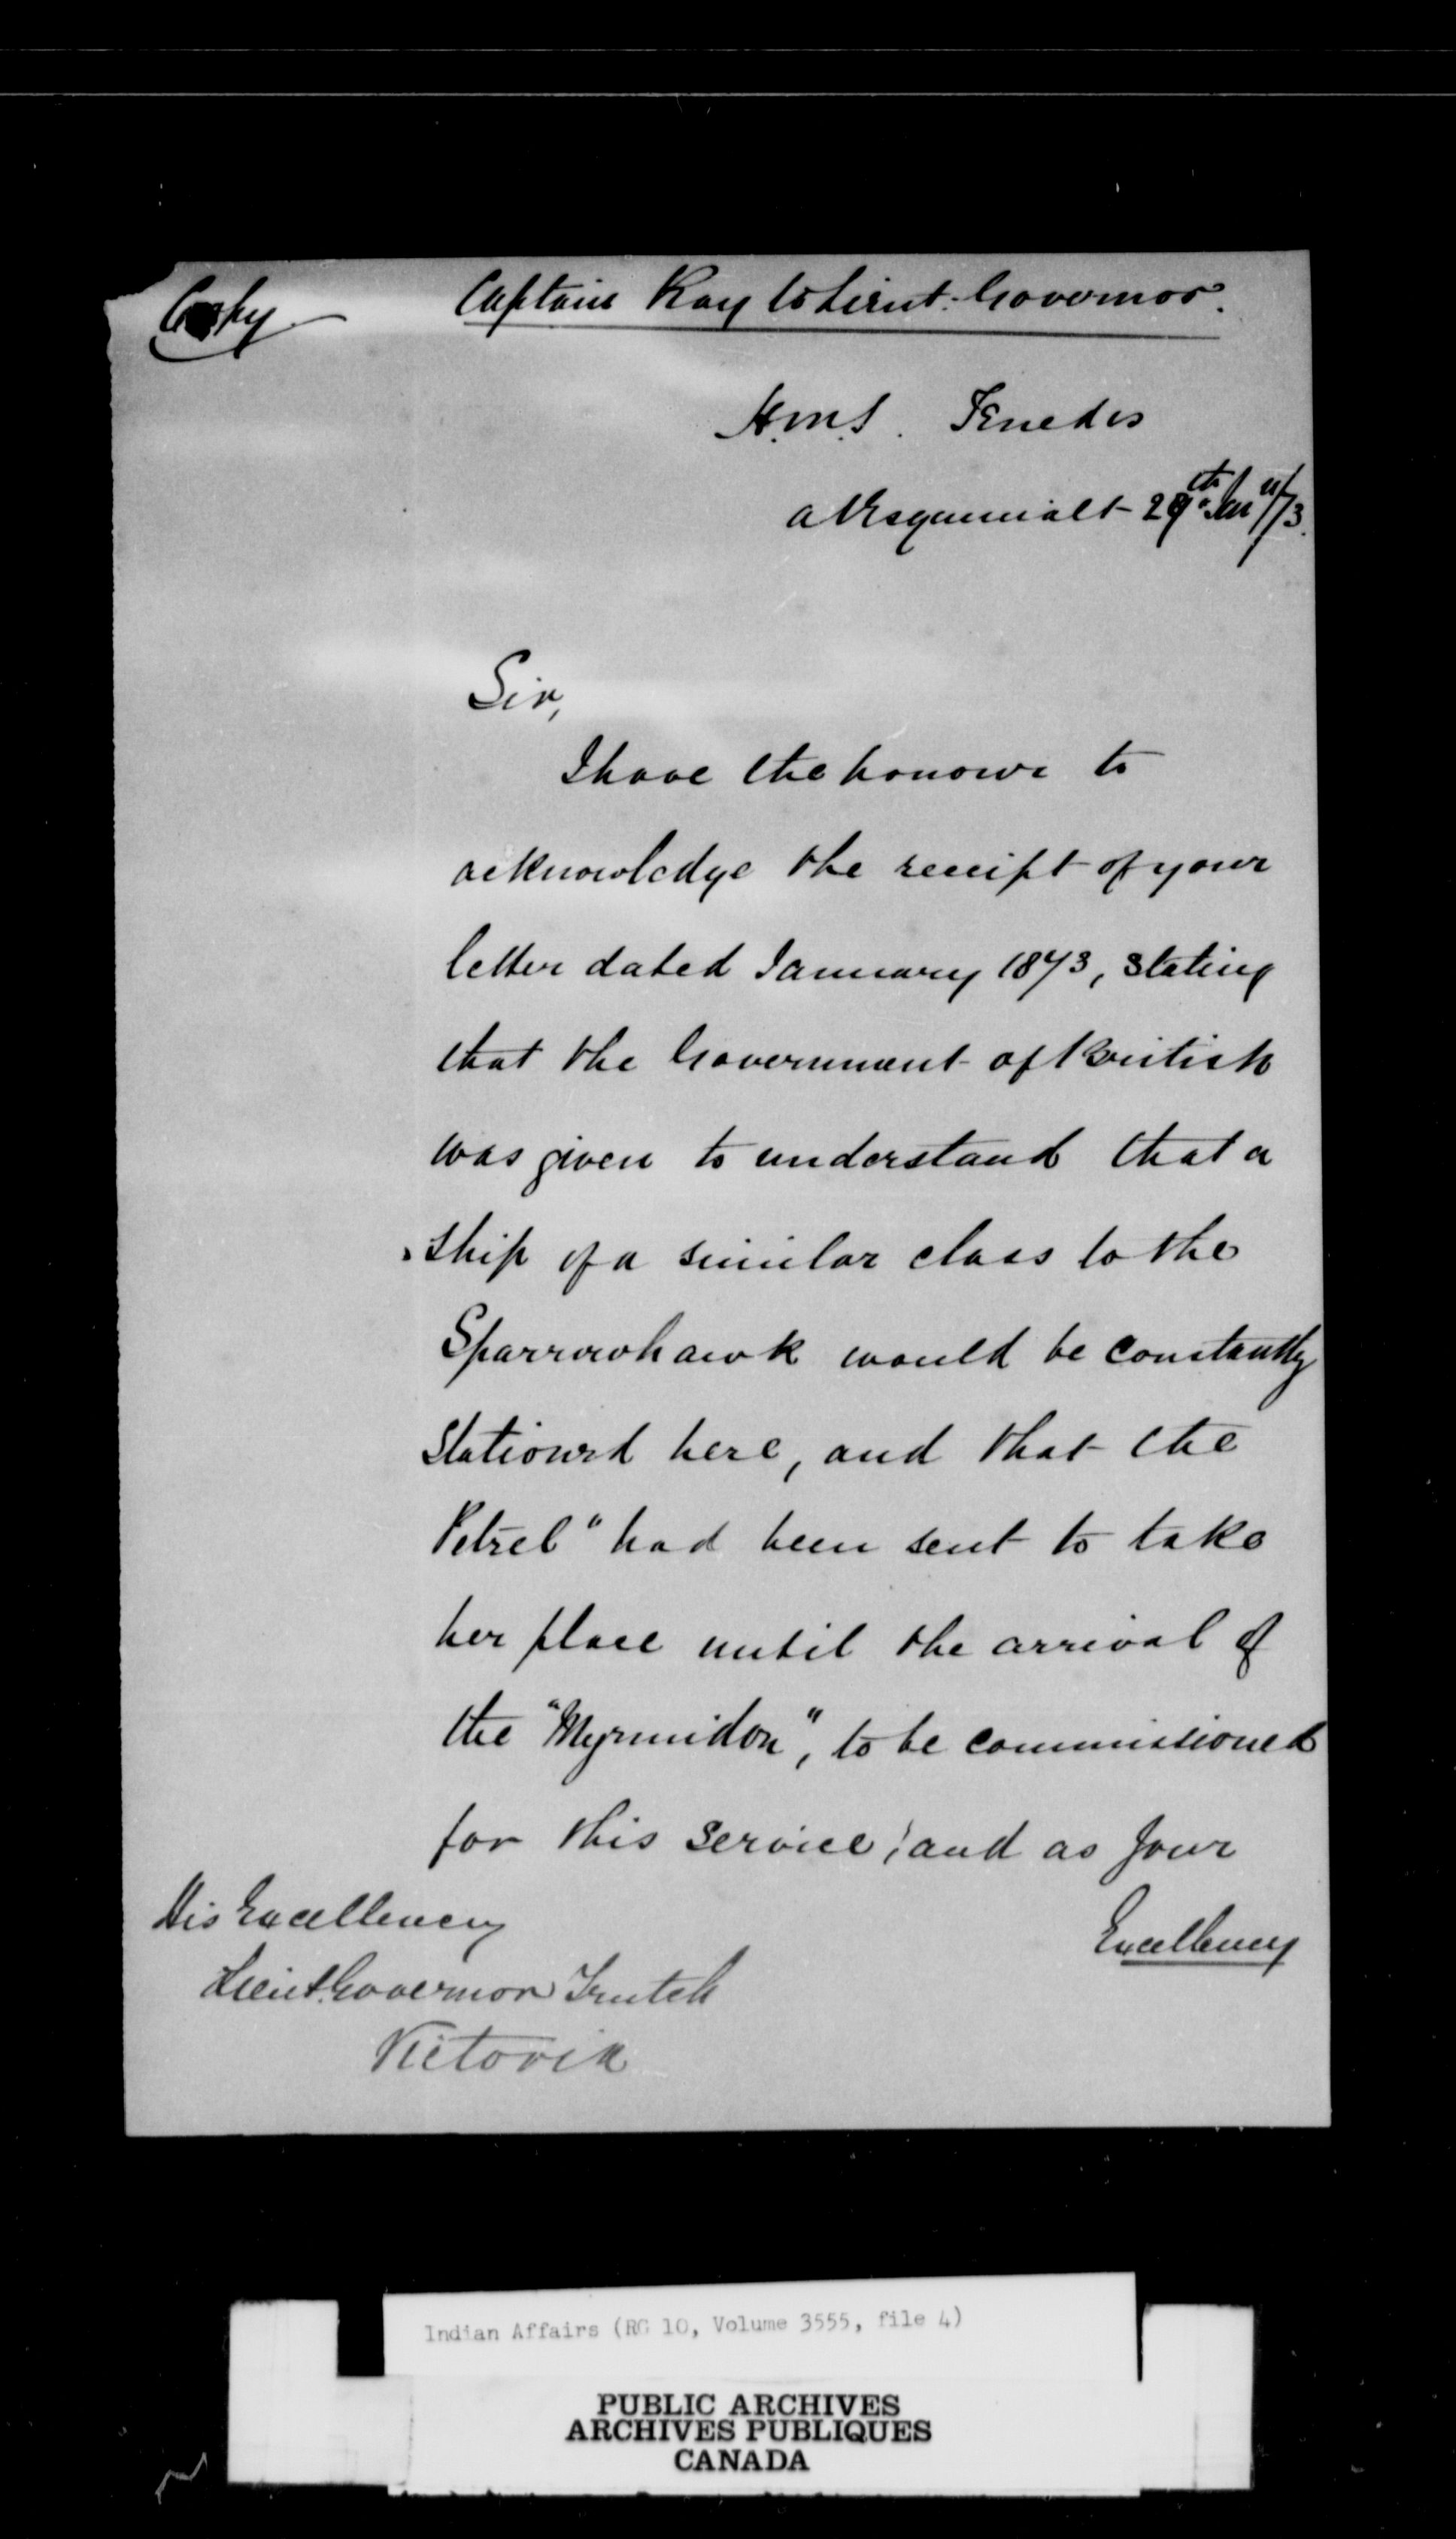 Copy
Captain Ray to Lieut. Governor.
H.M.S. Tenedos
at Esquimalt 29th Jany/73.
Sir,
I have the honour to
acknowledge the receipt of your
letter dated January 1873, stating
that the Government of British
was given to understand that a
ship of a similar class to the
Sparrowhawk would be constantly
stationed here, and that the
Petrel" had been sent to take
her place until the arrival of
the "Myrmidon", to be commissioned
for this service; and as Your
Excellency
His Excellency
Lieut. Governor Trutch
Victoria
Indian Affairs (RG 10, Volume 3555, file 4)
PUBLIC ARCHIVES
ARCHIVES PUBLIQUES
CANADA